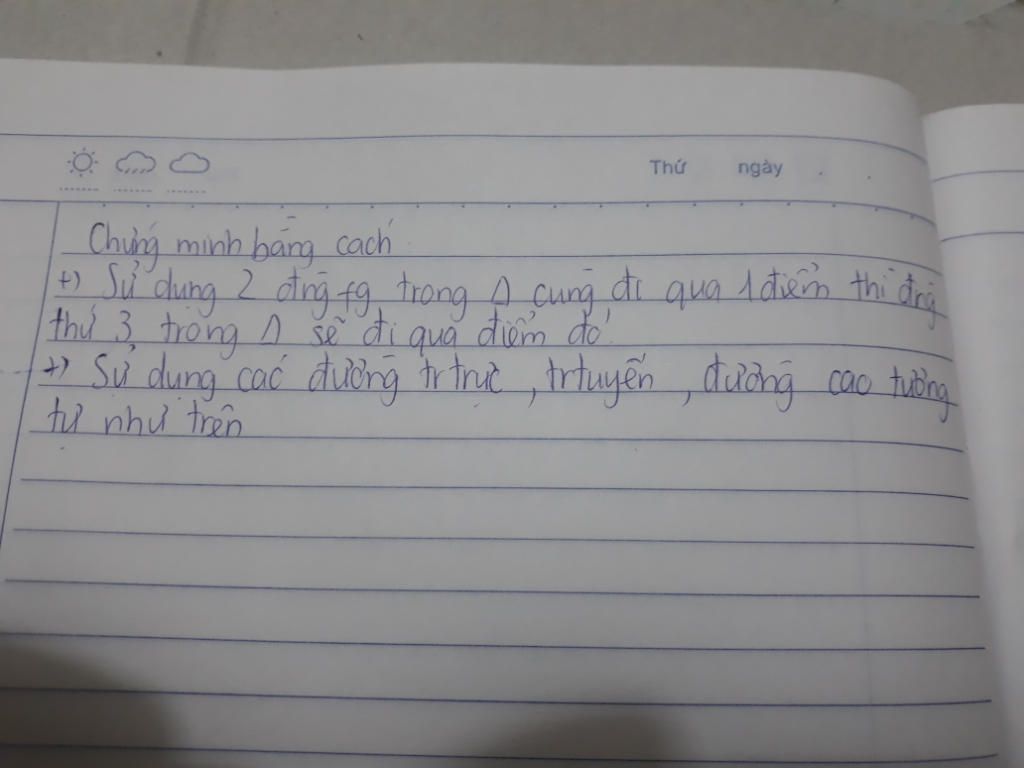 Thứ ngày
Chứng minh bằng cách
+) Sử dụng 2 đng fg trong Δ cùng đi qua 1 điểm thì đng
thứ 3 trong Δ sẽ đi qua điểm đó
+) Sử dụng các đường tr trực, tr tuyến, đường cao tương
tự như trên